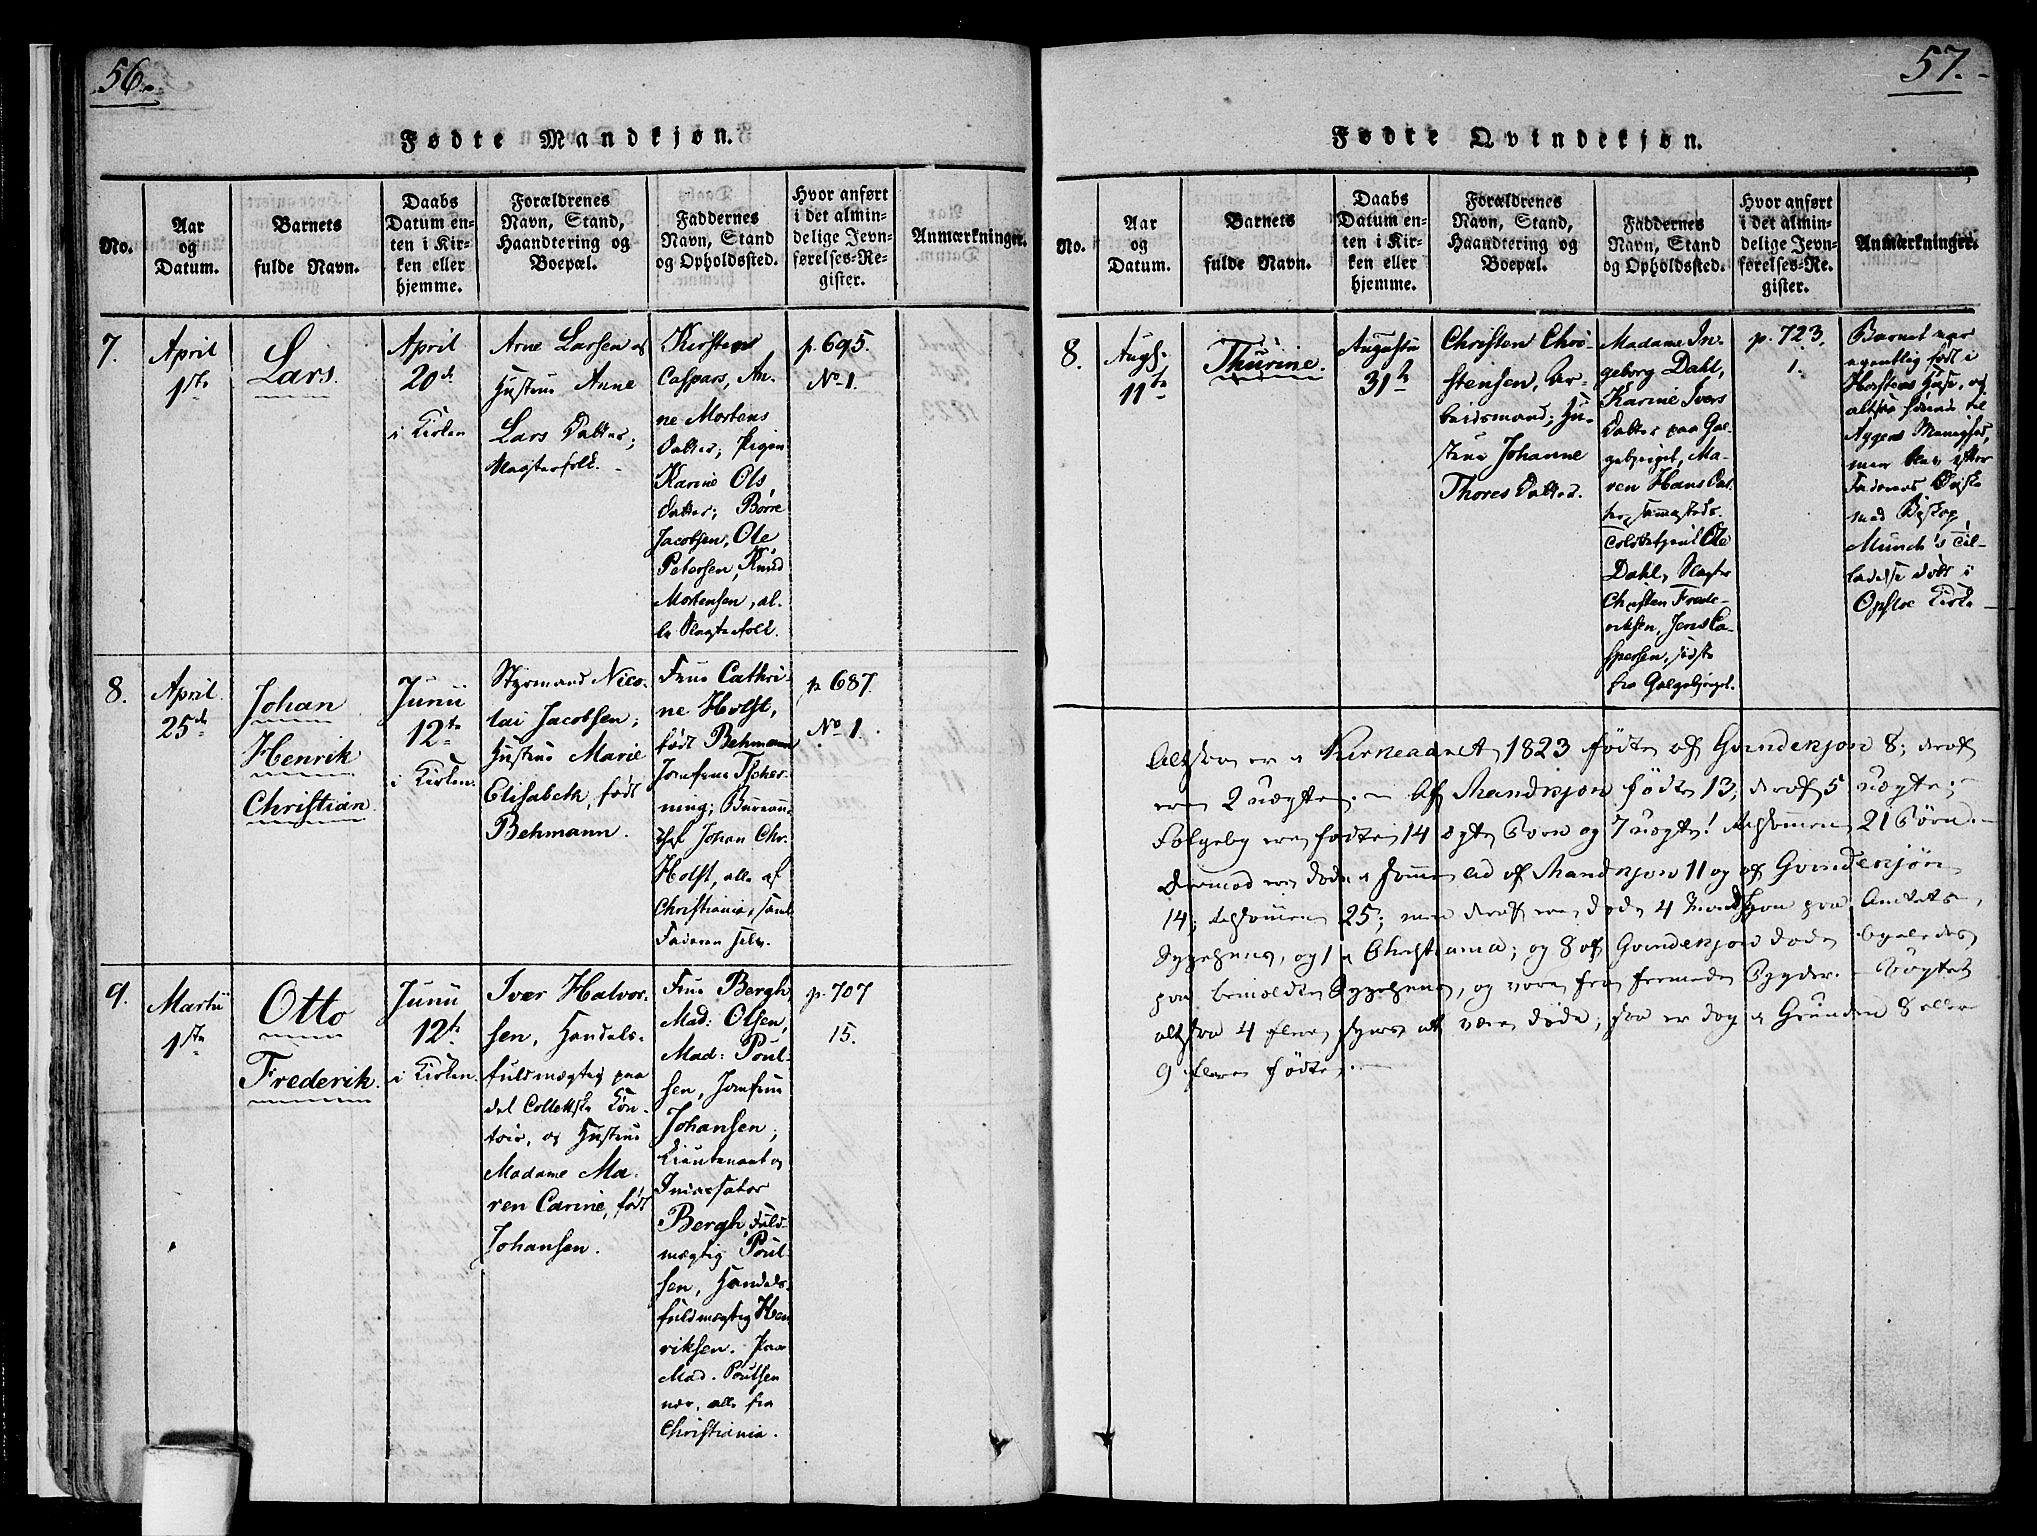 56.
Fødte Mandkjøn.
No.
Aar
og
Datum.
Barnets
fulde Navn.
Daabs
Datum en-
ten i Kir-
ken eller
hjemme.
Forældrenes
Navn, Stand,
Haandtering og
Boepæl.
Faddernes
Navn, Stand
og Opholdssted.
Hvor anført
i det almin-
delige Jevn-
førelses-Re-
gister.
Anmærkninger.
7.
April
1ste
Lars.
April
20de
i Kirken
Arne Larsen og
Hustrue Anne
Lars Datter;
Slagterfolk.
Kirsten
Caspars, An-
ne Mortens
Datter, Pigen
Karine Ols
Datter; Börre
Jacobsen, Ole
Petersen, Knud
Mortensen, al-
le Slagterfolk.
p. 695.
No 1.
8.
April
25de
Johan
Henrik
Christian
Junii
12te
i Kirken.
Styrmand Nico-
lai Jacobsen;
Hustrue Marie
Elisabeth, født
Behmann.
Frue Cathri-
ne Holst,
født Behmann
Jomfrue Tscher-
ning; Bureau-
chef Johan Chr.
Holst, alle af
Christiania, samt
Faderen selv.
p. 687.
No 1.
9.
Martii
1ste
Otto
Frederik.
Junii
12te
i Kirken.
Iver Halvor-
sen, Handels-
fuldmægtig paa
det Collettske Con-
toir, og Hustrue
Madame Ma-
ren Carine, født
Johansen.
Frue Bergh,
Mad: Olsen,
Mad: Poul-
sen, Jomfrue
Johansen;
Lieutenant og
Bergh, Fuld-
mægtig Poul-
sen, Handels-
fuldmægtig Hen-
riksen.
Mad. Poulsen
nær, alle fra
Christiania.
p. 707
15.
57.
Fødte Qvindekjøn.
No.
Aar
og
Datum.
Barnets
fulde Navn.
Daabs
Datum en-
ten i Kir-
ken eller
hjemme.
Forældrenes
Navn, Stand,
Haandtering og
Boepæl.
Faddernes
Navn, Stand
og Opholdssted.
Hvor anført
i det almin-
delige Jevn-
førelses-Re-
gister.
Anmærkninger.
8.
Augs.
11te
Thurine.
Augustii
31te
Christen Chri-
stensen, Ar-
beidsmand; Hu-
strue Johanne
Thores Datter.
Madame In-
geborg Dahl,
Karine Ivers
Datter paa Gal-
gebjerget, Ma-
ren Hans Dat-
ter sammesteds.
Ole
Dahl, Slagter
Christen Frede-
riksen, Jens Ca-
spersen, sidste
fra Galgebjerget.
p. 723,
1.
Barnet var
egentlig født i
Huse, og
altsaa hørende til
Aggers Menighed,
men blev efter
Faderens Ønske
med Biskop
Munch's Til-
ladelse døbt i
Opsloe Kirke
Altsaa er i Kirkeaaret 1823 fødte af Qvindekjøn 8; deraf
ere 2 uægte. — Af Mandkjøn fødte 13; deraf 5 uægte;
Følgelig ere fødte 14 ægte Børn og 7 uægte! tilsammen 21 Børn. —
Derimod ere døde i samme af Mandkjøn 11 og af Qvindekjøn
14; tilsammen 25; men deraf ere døde 4 Mandkjøn paa Amtets
Sygehuus, og 1 i Christiania; og 8 af Qvindekjøn døde ligeledes
paa bemeldte Sygehuus, og vare fra fremmede Bygder. —
altsaa 4 flere synes at være døde; saa er dog i Grunden 8 eller
9 flere fødte. —